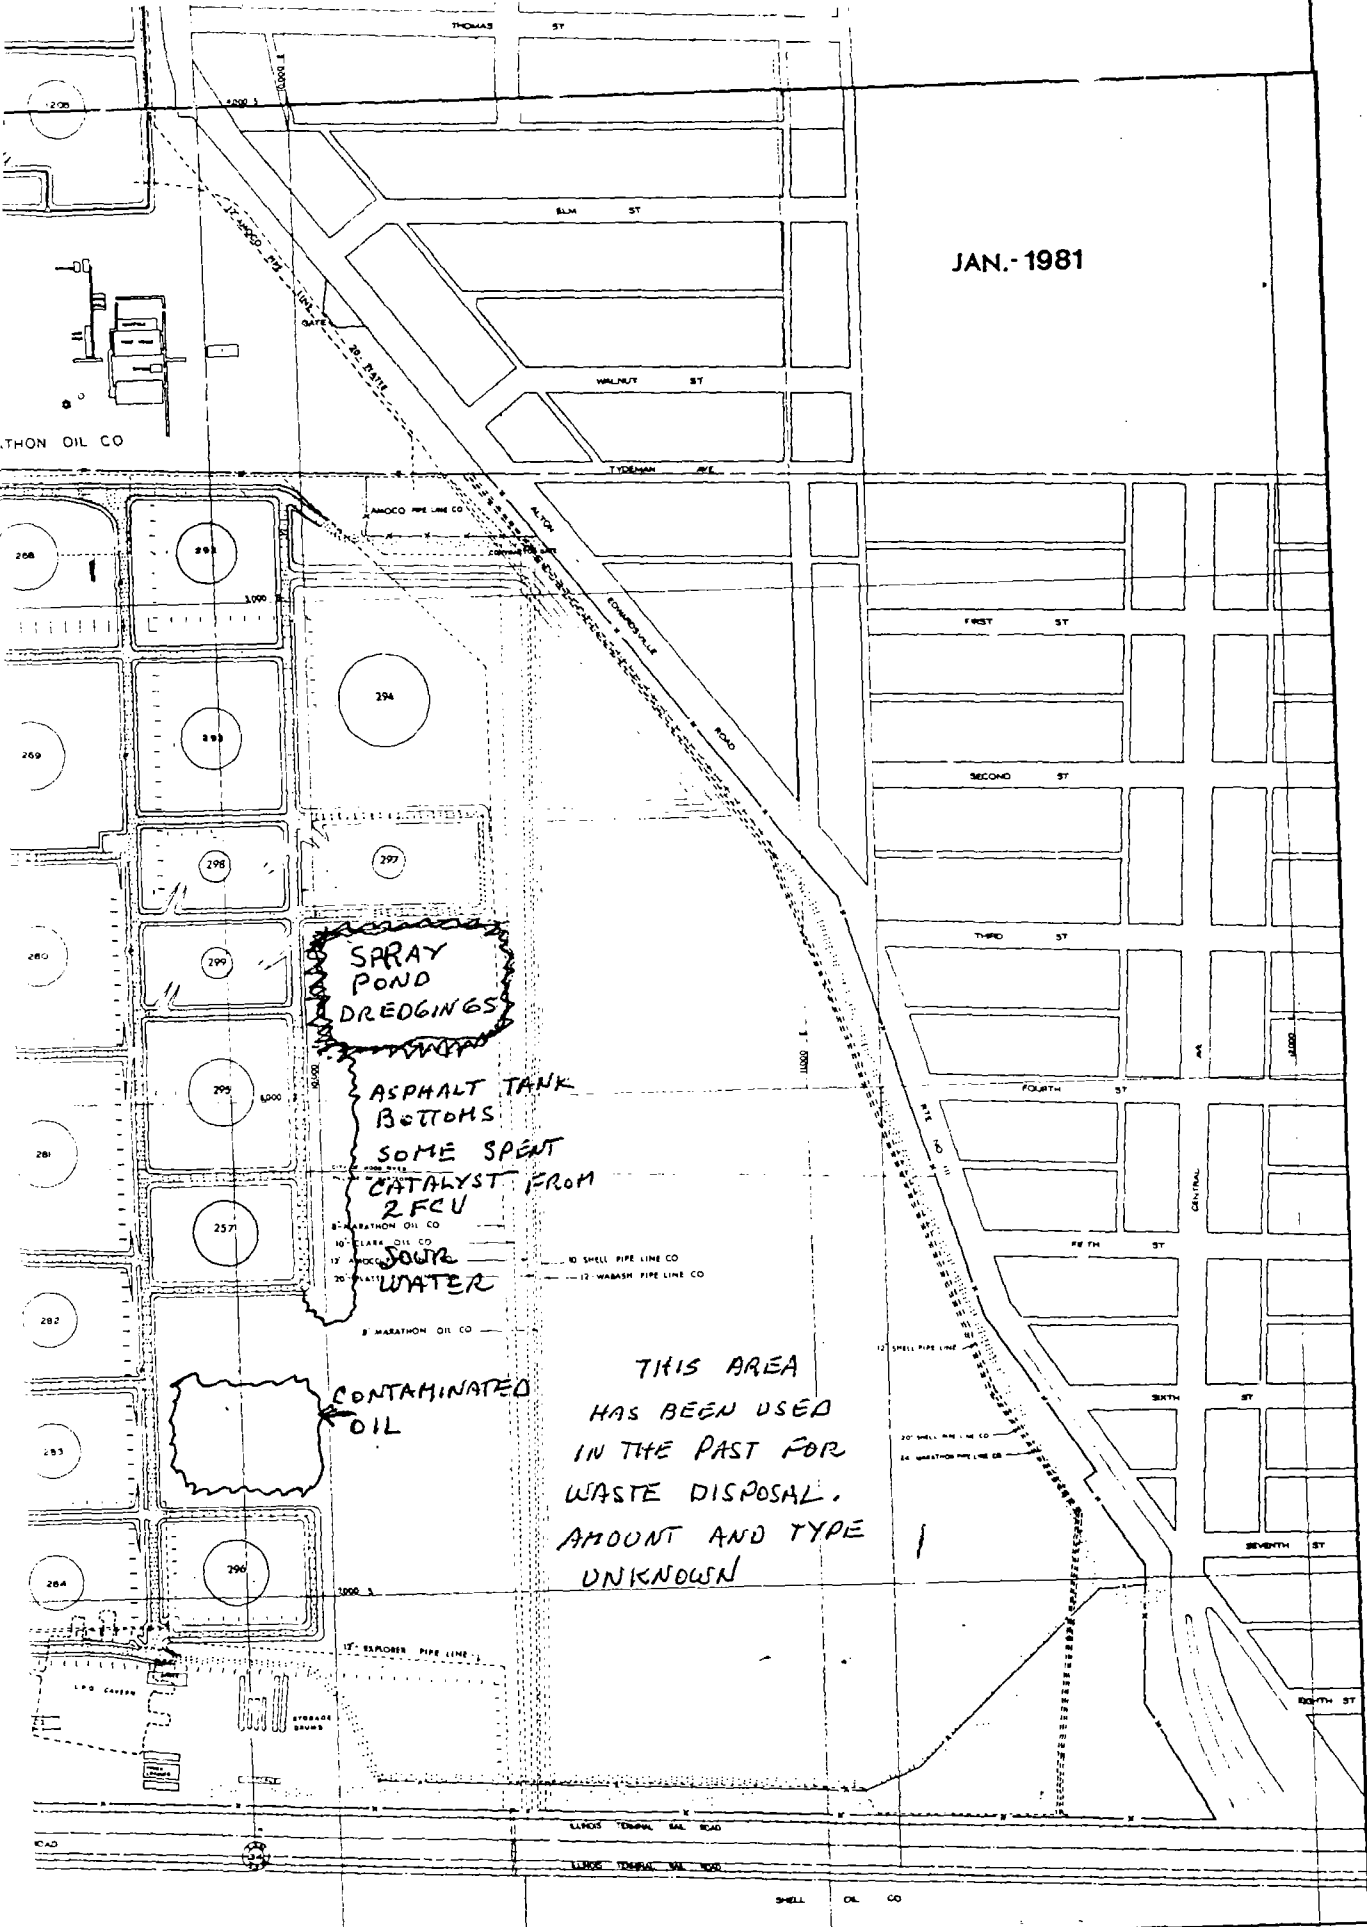 THOMAS ST
208
4,000 S
12" AMOCO PIPE LINE
ELM ST
JAN.-1981
GATE
20" PLATTE
WALNUT ST
THON OIL CO
TYDEMAN AVE
AMOCO PIPE LINE CO
ALTON
268
EDWARDSVILLE
5,000 S
FIRST ST
294
293
269
ROAD
SECOND ST
298
297
THIRD ST
280
299
SPRAY
POND
DREDGINGS
AVE
FOURTH ST
295
6,000 S
ASPHALT TANK
BOTTOMS
281
SOME SPENT
CATALYST FROM
2 FCU
RTE NO III
CENTRAL
257
8" MARATHON OIL CO
10" CLARK OIL CO
FIFTH ST
SOUR
WATER
10 SHELL PIPE LINE CO
12" WABASH PIPE LINE CO
282
8" MARATHON OIL CO
12" SHELL PIPE LINE
CONTAMINATED
OIL
THIS AREA
HAS BEEN USED
IN THE PAST FOR
WASTE DISPOSAL.
AMOUNT AND TYPE
UNKNOWN
SIXTH ST
20" SHELL PIPE LINE CO
24" MARATHON PIPE LINE CO
283
SEVENTH ST
284
296
7,000 S
12" EXPLORER PIPE LINE
LPG CAVERN
STORAGE
DRUMS
EIGHTH ST
ILLINOIS TERMINAL RAIL ROAD
ILLINOIS TERMINAL RAIL ROAD
SHELL OIL CO